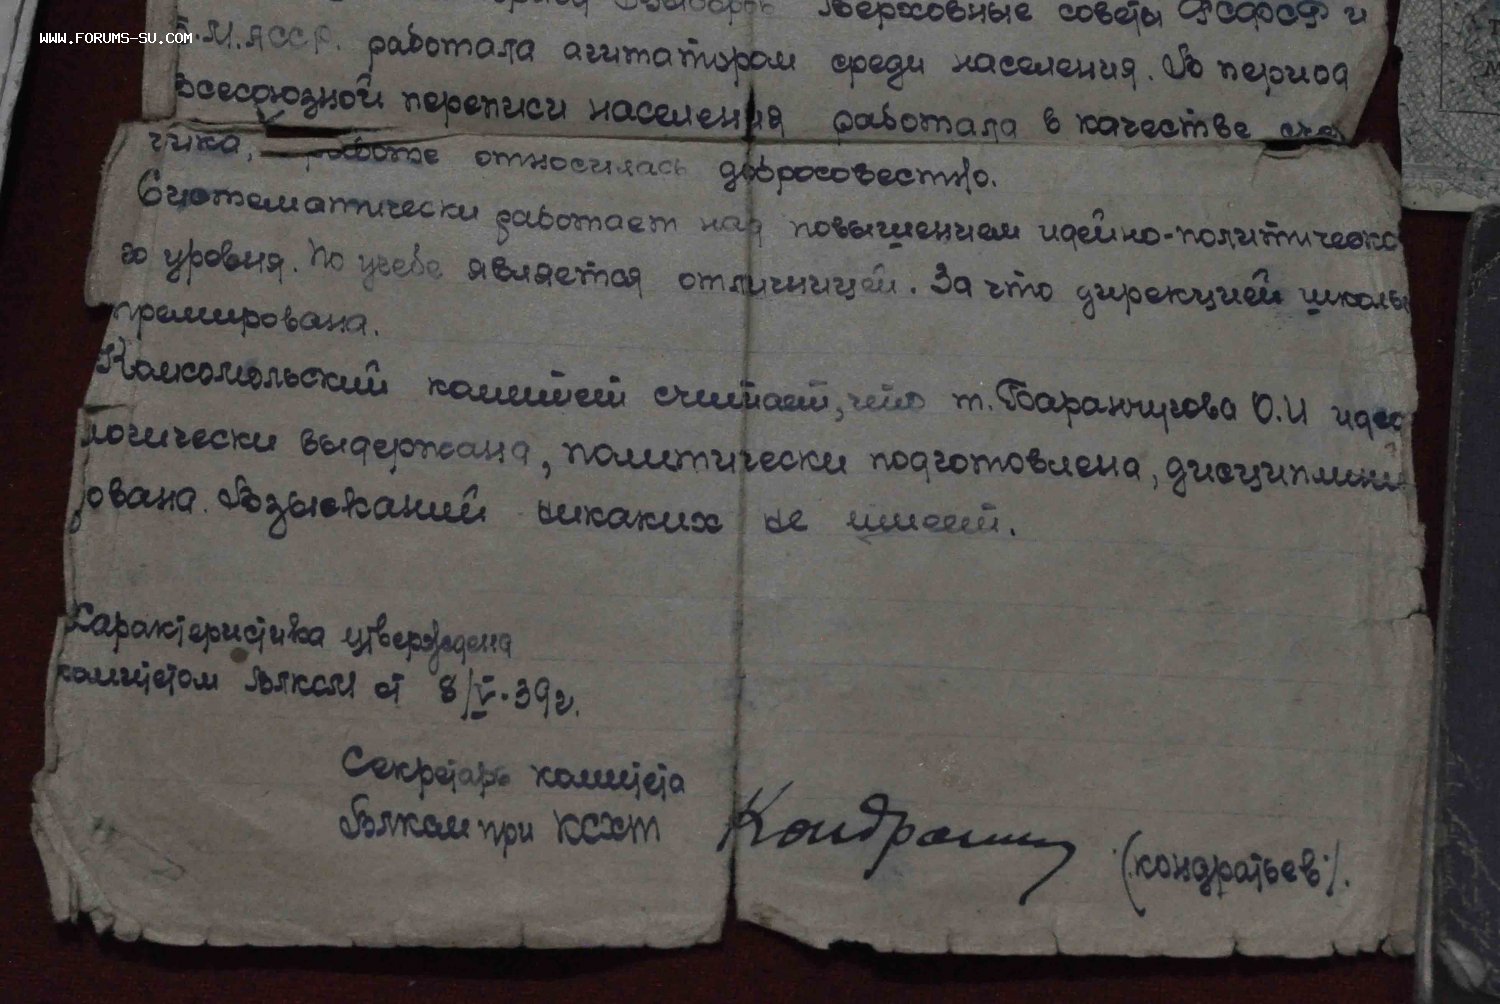 WWW.FORUMS-SU.COM
выборов Верховные советы РСФСР и
М.АССР. работала агитатором среди населения. В период
всесоюзной переписи населения работала в качестве счет
чика, работе относилась добросовестно.
Систематически работает над повышением идейно-политическо
го уровня. По учебе является отличницей. За что дирекцией школы
премирована.
Комсомольский комитет считает, что т. Баранчугова О.И идео
логически выдержана, политически подготовлена, дисциплини
рована. Взысканий никаких не имеет.
Характеристика утверждена
комитетом ВЛКСМ от 8/V-39г.
Секретарь комитета
ВЛКСМ при КСХТ
(Кондратьев).